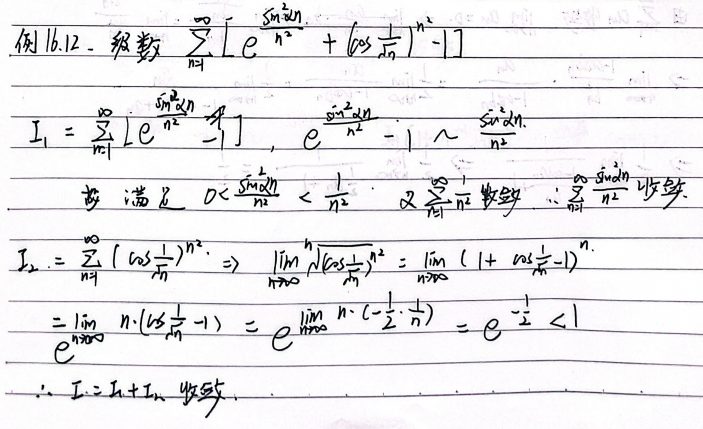 例16.12. 级数 ∑_{n=1}^{∞} [ e^{\frac{sin²αn}{n²}} + (cos \frac{1}{\sqrt{n}})^{n²} -1 ]
I₁ = ∑_{n=1}^{∞} [ e^{\frac{sin²αn}{n²}} -1 ] , e^{\frac{sin²αn}{n²}} - 1 ~ \frac{sin²αn}{n²}
故 满足 0< \frac{sin²αn}{n²} < \frac{1}{n²} 又 ∑_{n=1}^{∞} \frac{1}{n²} 敛 ∴ ∑_{n=1}^{∞} \frac{sin²αn}{n²} 收敛.
I₂ = ∑_{n=1}^{∞} (cos \frac{1}{\sqrt{n}})^{n²} ⇒ lim_{n→∞} \sqrt[n]{(cos \frac{1}{\sqrt{n}})^{n²}} = lim_{n→∞} (1 + cos \frac{1}{\sqrt{n}} -1)^{n}
= e^{lim_{n→∞} n·(cos \frac{1}{\sqrt{n}} -1)} = e^{lim_{n→∞} n·(-\frac{1}{2}·\frac{1}{n})} = e^{-\frac{1}{2}} < 1
∴ I = I₁ + I₂ 收敛.